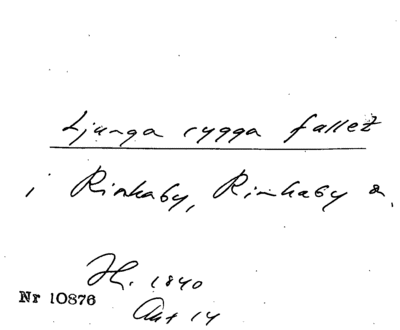 Ljunga rygga fallet
i Rinkaby, Rinkaby s.
H. 1840
Nr 10876
Akt 14